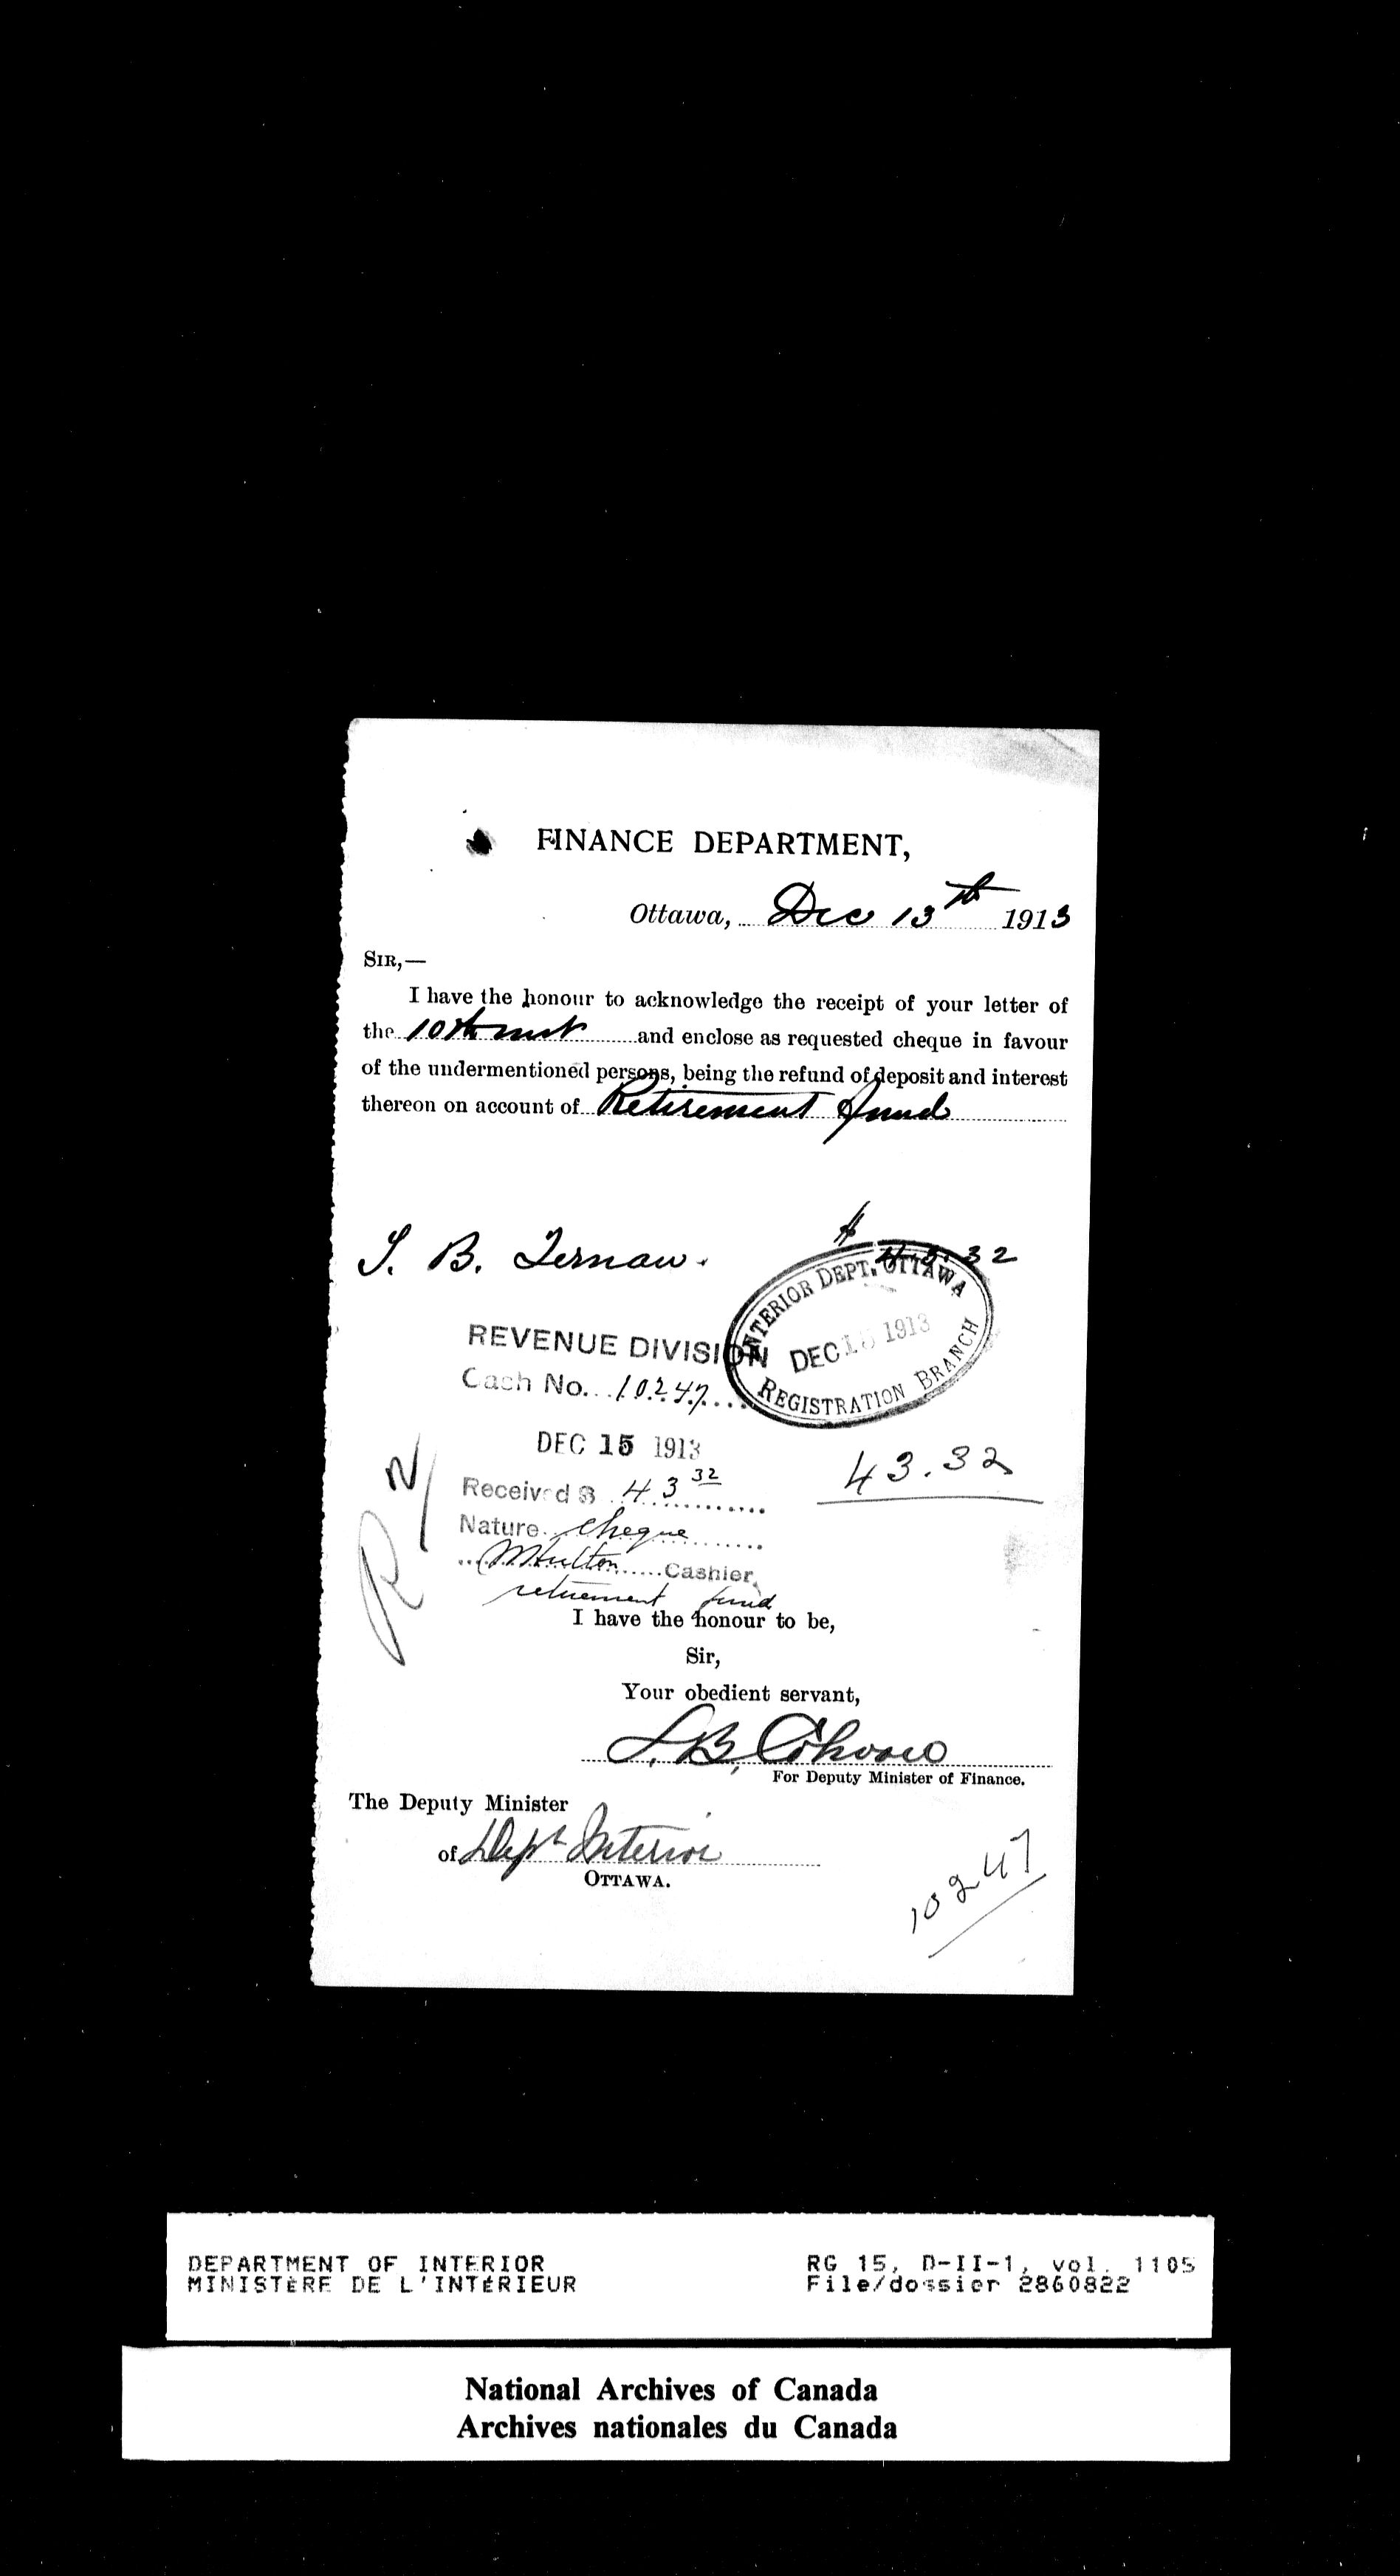 FINANCE DEPARTMENT,
Ottawa, Dec 13th 1913
SIR,—
I have the honour to acknowledge the receipt of your letter of
the 10th inst and enclose as requested cheque in favour
of the undermentioned persons, being the refund of deposit and interest
thereon on account of Retirement fund
$ 43.32
B.
INTERIOR DEPT. OTTAWA
DEC 15 1913
REGISTRATION BRANCH
REVENUE DIVISION
Cash No. 10247
DEC 15 1913
43.32
Received $ 43 32
Nature cheque
Cashier
retirement fund
I have the honour to be,
Sir,
Your obedient servant,
For Deputy Minister of Finance.
The Deputy Minister
of Dept Interior
OTTAWA.
10247
DEPARTMENT OF INTERIOR
MINISTÈRE DE L'INTÉRIEUR
RG 15, D-II-1, vol. 1105
File/dossier 2860822
National Archives of Canada
Archives nationales du Canada